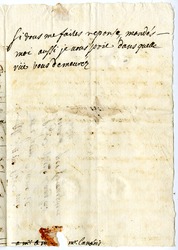 si vous me faites reponse mandés
moi aussi je vous prie dans quelle
vüe vous demeurez